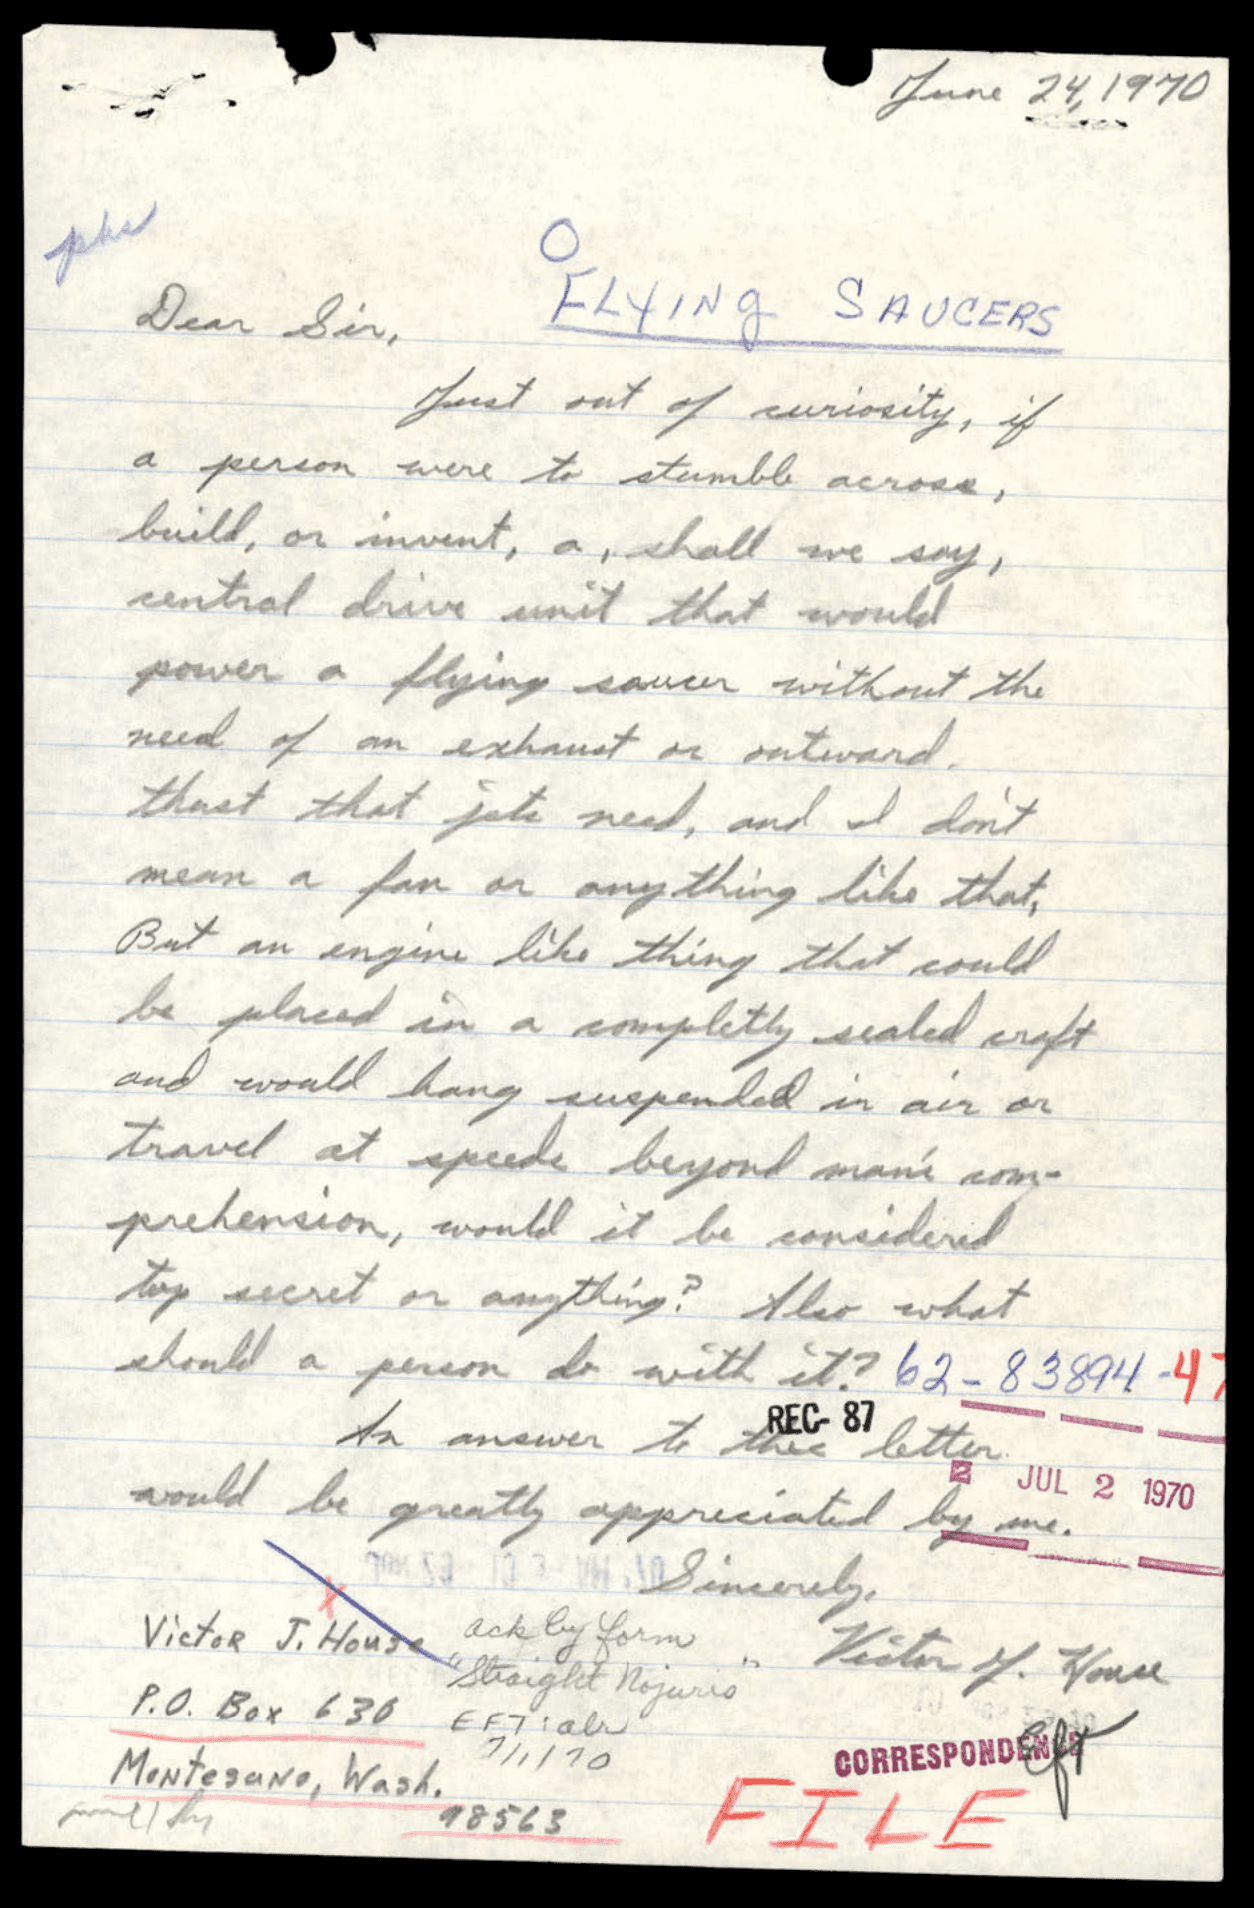 June 24, 1970
phs
O
FLYING SAUCERS
Dear Sir,
Just out of curiosity, if
a person were to stumble across,
build, or invent, a, shall we say,
central drive unit that would
power a flying saucer without the
need of an exhaust or outward
thust that jets need, and I don't
mean a fan or anything like that,
But an engine like thing that could
be placed in a completly sealed craft
and would hang suspended in air or
travel at speeds beyond man's com-
prehension, would it be considered
top secret or anything? Also what
should a person do with it? 62-83894-47
REC- 87
An answer to this letter
2 JUL 2 1970
would be greatly appreciated by me.
Sincerely,
Victor J. House
Victor J. House
ack by form
"Straight Nojuris"
P.O. Box 630
EFT:alr
7/1/70
CORRESPONDENCE
Eft
Montesano, Wash.
98563
FILE